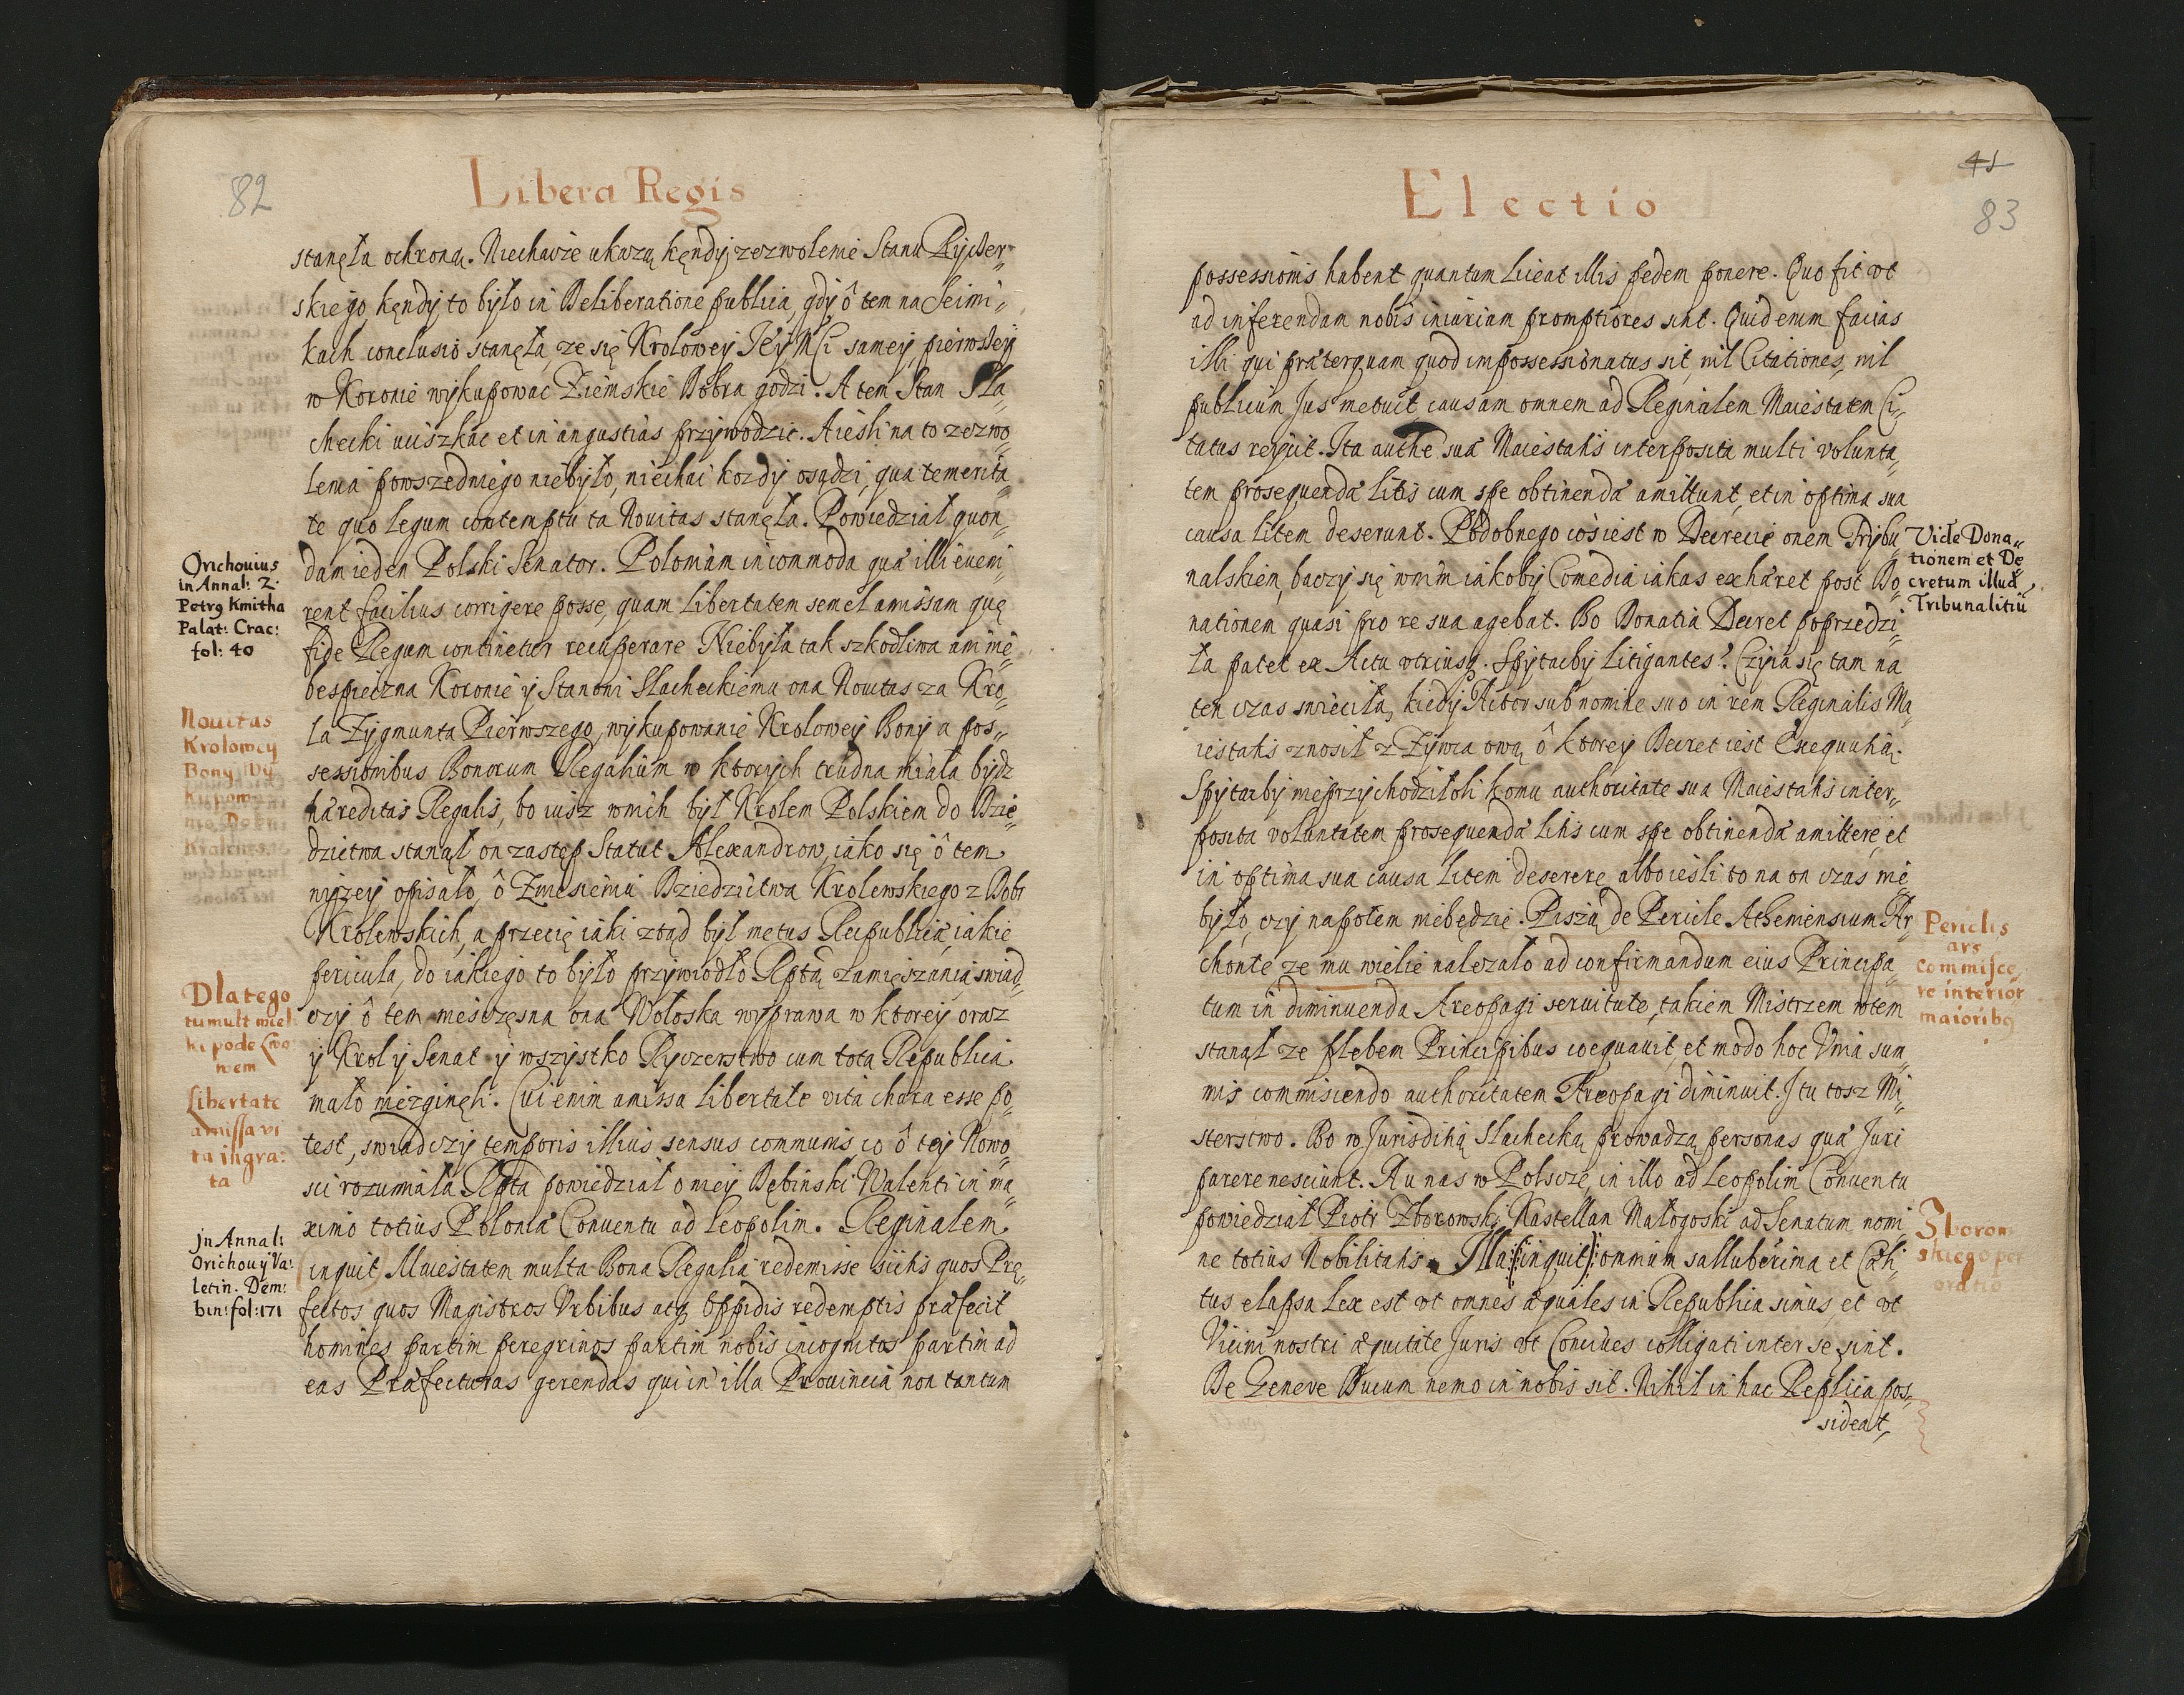 82
Libera Regis
stanęła ochroną. Niechaże ukażą kędy zezwolenie Stanu Rycer„
skiego, kędy to było in Deliberatione publica, gdy ô tem na Seimi„
kach conclusio stanęła, ze się Krolowey Jey Mci samey pierwszey
w Koronie wykupować Ziemskie Dobra godzi. A tem Stan Sla„
checki uciszkac et in angustias przywodzic. A iesli na to zezwo„
lenia powszedniego niebyło, niechai kozdy osądzi, qua temerita„
te quo legum contemptu ta Nouitas stanęła. Powiedział quon„
dam ieden Polski Senator. Polonam incommoda quæ illi eveni„
rent facilius corrigere posse, quam libertatem semel amissam quę
fide Regum continetur recuperare Niebyła tak szkodliwa ani nie„
bespieczna Koronie y Stanowi Slacheckiemu ona Nouitas za Kro„
la Zygmunta Pierwszego, wykupowanie Krolowey Bony a pos„
sessionibus Bonorum Regalium w ktorych trudna miała bydz
hæreditas Regalis, bo iusz wnich był Krolem Polskiem do Dzie„
dzictwa stanął on zastęp Statut Alexandrow, iako się ô tem
nizey opisało, ô Zniesieniu Dziedzictwa Krolewskiego z Dobr
Krolewskich, a przecię iaki ztąd był metus Reipublicæ, iakie
pericula, do iakiego to było przywiodło Rptą zamięszania, swiad„
czy ô tem niesczęsna ona Wołoska wyprawa w ktorey oraz
y Krol y Senat y wszystko Ryczerstwo cum tota Republica
mało niezginęli. Cui enim amissa libertate vita chara esse po„
test, swiadczy temporis illius sensus communis, co ô tey Nowo„
sci rozumiała Rpta powiedział o niey Dębinski Walenti in ma„
ximo totius Poloniæ Conuentu ad Leopolim. Reginalem
(inquit) Maiestatem multa Bona Regalia redemisse sciitis quos Prę„
fectos quos Magistros Vrbibus atq₃ Oppidis redemptis præfecit
homines partim peregrinos partim nobis incognitos partim ad
eas Præfecturas gerendas qui in illa Prouincia non tantum
Orichouius
in Annal: 2.
Petrg Kmitha
Palat: Crac:
fol: 40
Nouitas
Krolowey
Bony Wy
Dlatego
tumult wiel
ki pode Lwo
wem
Libertate
amissa vi
ta ingra:
ta
Jn Annal:
Orichouy Va:
letin. Dem:
bin: fol: 171
41
83
Electio
possessionis habent quantum liceat illis pedem ponere. Quo fit vt
ad inferendam nobis iniuriam promptiores sint. Quid enim facias
illi qui præterquam quod impossessionatus sit, nil Citationes, nil
publicum Jus metuit, causam omnem ad Reginalem Maiestatem Ci„
tatus reijcit. Ita authe sua Maiestatis interposita multi volunta„
tem prosequendæ litis cum spe obtinendæ amittunt, et in optima sua
causa litem deserunt. Podobnego cos iest w Decrecie onem Trybu„
nalskiem, baczy się wnim iakoby Comedia iakas exhæret post Do„
nationem quasi pro re sua agebat. Bo Donatia Decret poprzedzi„
ła patet ex Actu vtriusq₃. Spytacby Litigantes? Czyia się tam na
ten czas swieciła, kiedy Actor sub nomine suo in rem Reginalis Ma„
iestatis znosił z Zywca ową ô ktorey Decret iest Exequutią.
Spytacby nieprzychodziłoli komu authoritate sua Maiestatis inter„
posita voluntatem prosequendæ litis cum spe obtinendæ amittere, et
in optima sua causa litem deserere, albo iesli to na on czas nie
było, czy napotem niebędzie. Piszą de Pericle Atheniensium Ar„
chonte ze mu wielie nalezało ad confirmandum eius Principa„
tum in diminuenda Areopagi seruitute, takiem Mistrzem wtem
stanął ze plebem Principibus coequauit, et modo hoc Vnia sum„
mis commiscendo authoritatem Areopagi diminuit. J tu tosz Mi„
sterstwo. Bo w Jurisditią Slachecką prowadzą personas quæ Juri
parere nesciunt. A u nas w Polscze, in illo ad Leopolim Conuentu
powiedział Piotr Zborowski Kasztellan Małogoski ad Senatum nomi„
ne totius Nobilitatis. Illa (:inquit:) omnium salluberima et Cæli„
tus elapsa Lex est vt omnes æquales in Republica simus, et vt
Vicini nostri æquitate Juris vt Conciues colligati inter se sint.
De Genere Ducum nemo in nobis sit. Nihil in hac Replica pos„
sideat,
Vide Dona„
tionem et De
cretum illud
Tribunalitiū
Periclis
ars
commisce„
re inferior
maioribq
Zborow
skiego per
oratio